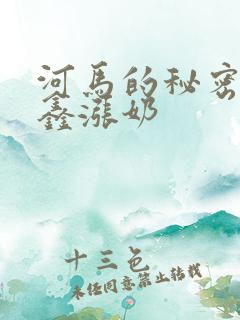 河马的秘密
鑫涨奶
十三色
未经同意禁止转载